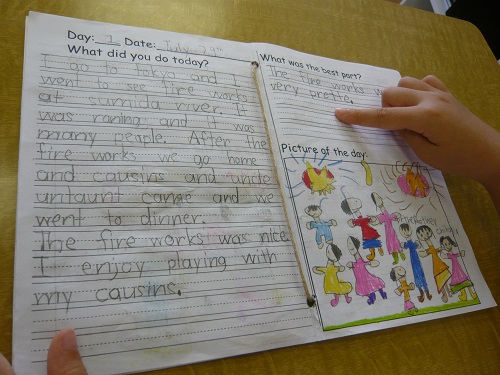 Day: 1 Date: July 29th
What did you do today?
I go to tokyo and I
went to see fire works
at sumida river. It
was raning and it was
many peaple. After the
fire works we go home
and causins and uncle
untaunt came and we
went to dinner.
The fire works was nice.
I enjoy playing with
my causins.
What was the best part?
The fire works w
very prette.
Picture of the day: